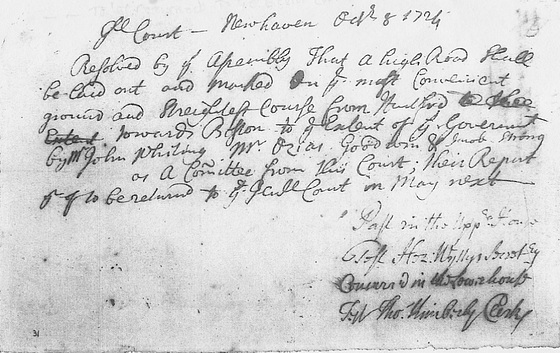 Gll Court – Newhaven Octbr 8 1724
Resolved by ye Assembly That a high Road shall
be laid out and marked on ye most Convenient
ground and Streightest Course from Hartford to thee
Extent towards Boston to ye Extent of ye Governmt
by mr John Whiting mr Ozias Goodwin & Jacob Strong
as a Comittee from this Court; their Report
to be returnd to ye Genll Court in May next
Past in the Uppr House
Test Hez: Wyllys Secretry
Concurrd in the Lower house
Test Tho: Kimberly Clerk
31